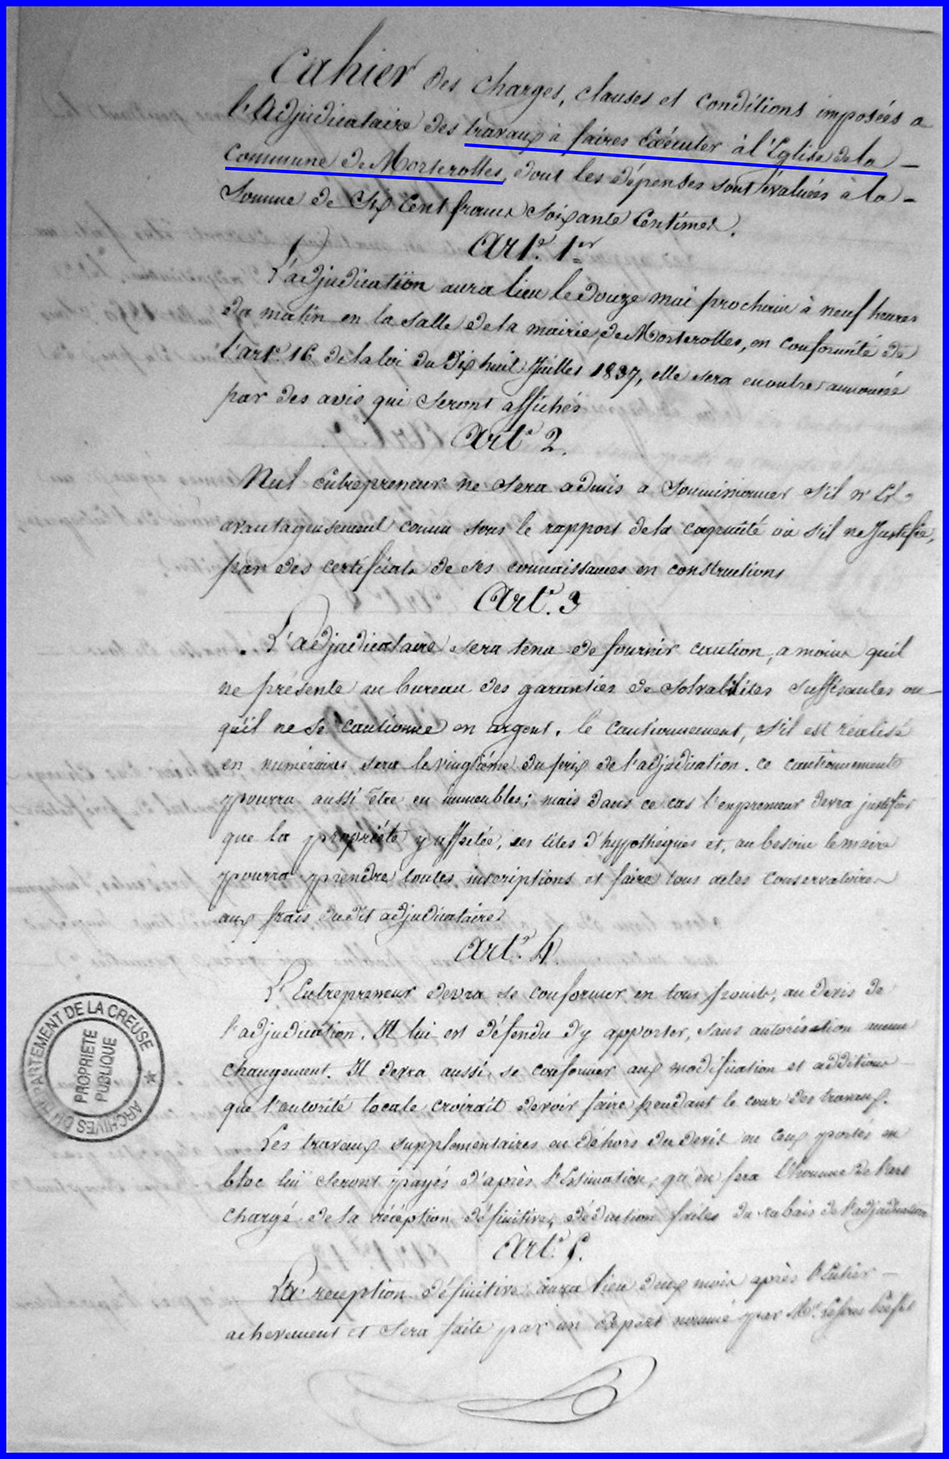 Cahier des charges, clauses et conditions imposées a
l'Adjudicataire des travaux à faires Exécuter à l'Eglise de la
Commune de Morterolles, dont les dépenses sont évaluées à la
Somme de Six Cent francs soixante Centimes.
Art.e 1.er
L'adjudication aura lieu le douze mai prochain à neuf heures
du matin en la salle de la mairie de Morterolles, en conformité de
l'art.e 16 de la loi du Dix huit Juillet 1837, elle sera en outre annoncé
par des avis qui seront affichés
Art.e 2.
Nul entrepreneur ne sera admis a soumissionner s'il n'est
avantageusement connu sous le rapport de la capacité ou s'il ne Justifie,
par des certificats de ses connaissances en constructions
Art.e 3
L'Adjudicataire sera tenu de fournir caution, a moins quil
ne présente au bureau des garanties de solvabilités suffisantes ou
qu'il ne se cautionne en argent. le cautionnement, s'il est réalisé
en numéraires sera le vingtième du prix de l'adjudication. ce cautionnement
pourra aussi être en immeubles; mais dans ce cas l'enpreneur devra justifier
que la propriété y affectée, est libre d'hypothéques et, au besoin le maire
pourra prendre toutes inscriptions et faire tous actes conservatoires
aux frais du dit adjudicataire
Art.e 4.
L'Entrepreneur devra se conformer en tous points, au devis de
l'adjudication. Il lui est défendu d'y apporter, sans autorisation aucun
changement. Il devra aussi se conformer aux modification et additions
que l'autorité locale croirait devoir faire pendant le cour des travaux.
Les travaux supplémentaires en déhors du devis ou ceux portés en
bloc lui seront payés d'après l'estimation, qu'en fera l'homme de l'art
chargé de la réception définitive, déduction faites du rabais de l'adjudication
Art.e 5.
La reception définitive aura lieu deux mois après l'entier
achevement et sera faite par un Expert nommé par Mr. le Sous Préfet
DÉPARTEMENT DE LA CREUSE
ARCHIVES DU
PROPRIETE
PUBLIQUE